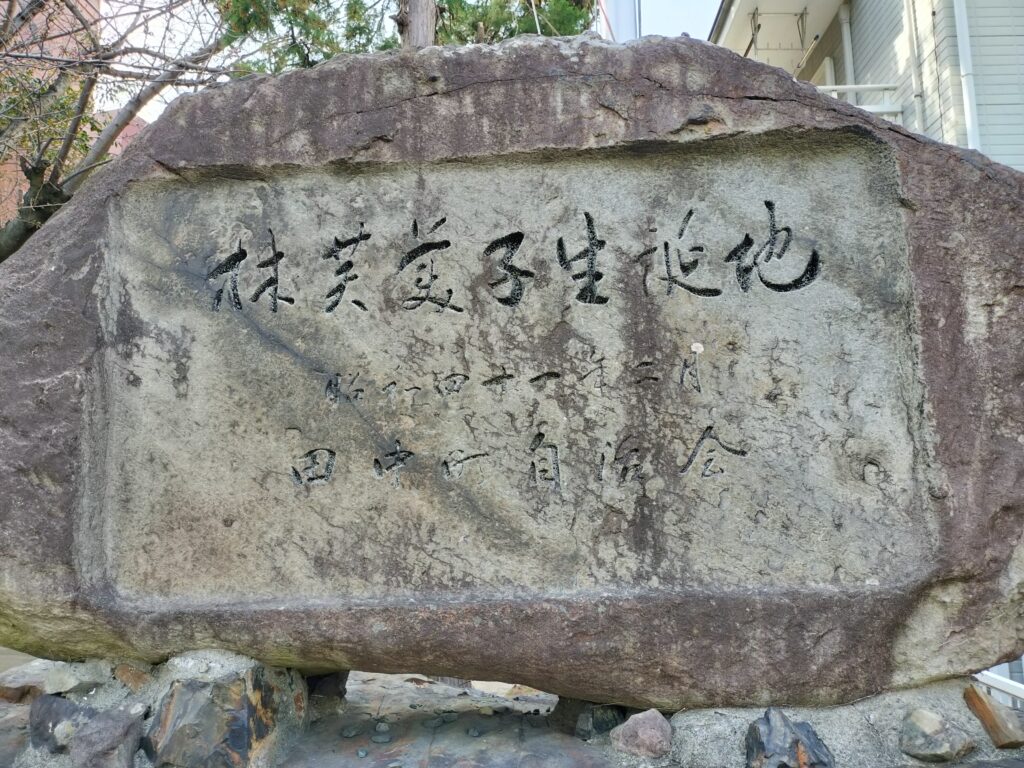 林芙美子生誕地
昭和四十一年二月
田中町自治会